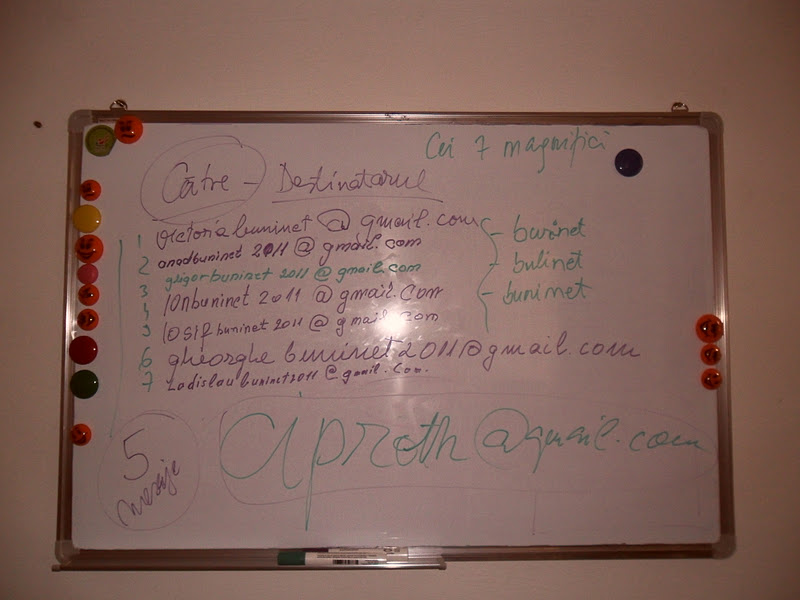 Cei 7 magnifici
Către - Destinatarul
1 victoriabuninet@gmail.com - buninet
2 anadbuninet2011@gmail.com
3 gligorbuninet2011@gmail.com - bulinet
4 IONbuninet2011@gmail.com - bunimet
5 IOSIFbuninet2011@gmail.com
6 gheorghebuninet2011@gmail.com
7 Ladislaubuninet2011@gmail.com
5 mesaje
aproth@gmail.com